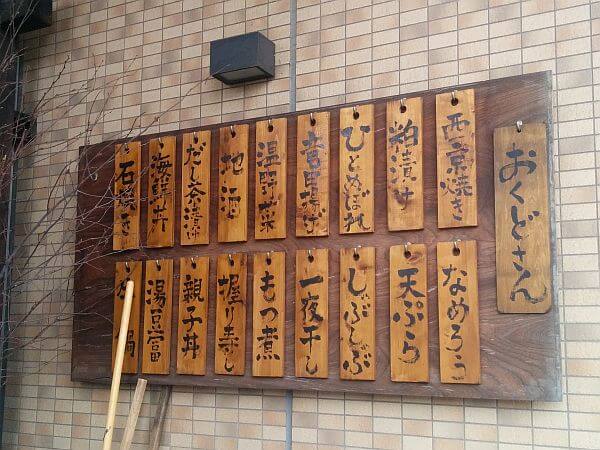 おくどさん
西京焼き
粕漬け
ひとめぼれ
竜田揚げ
温野菜
地酒
だし茶漬け
海鮮丼
石焼き
なめろう
天ぷら
しゃぶしゃぶ
一夜干し
もつ煮
握り寿し
親子丼
湯豆富
鍋